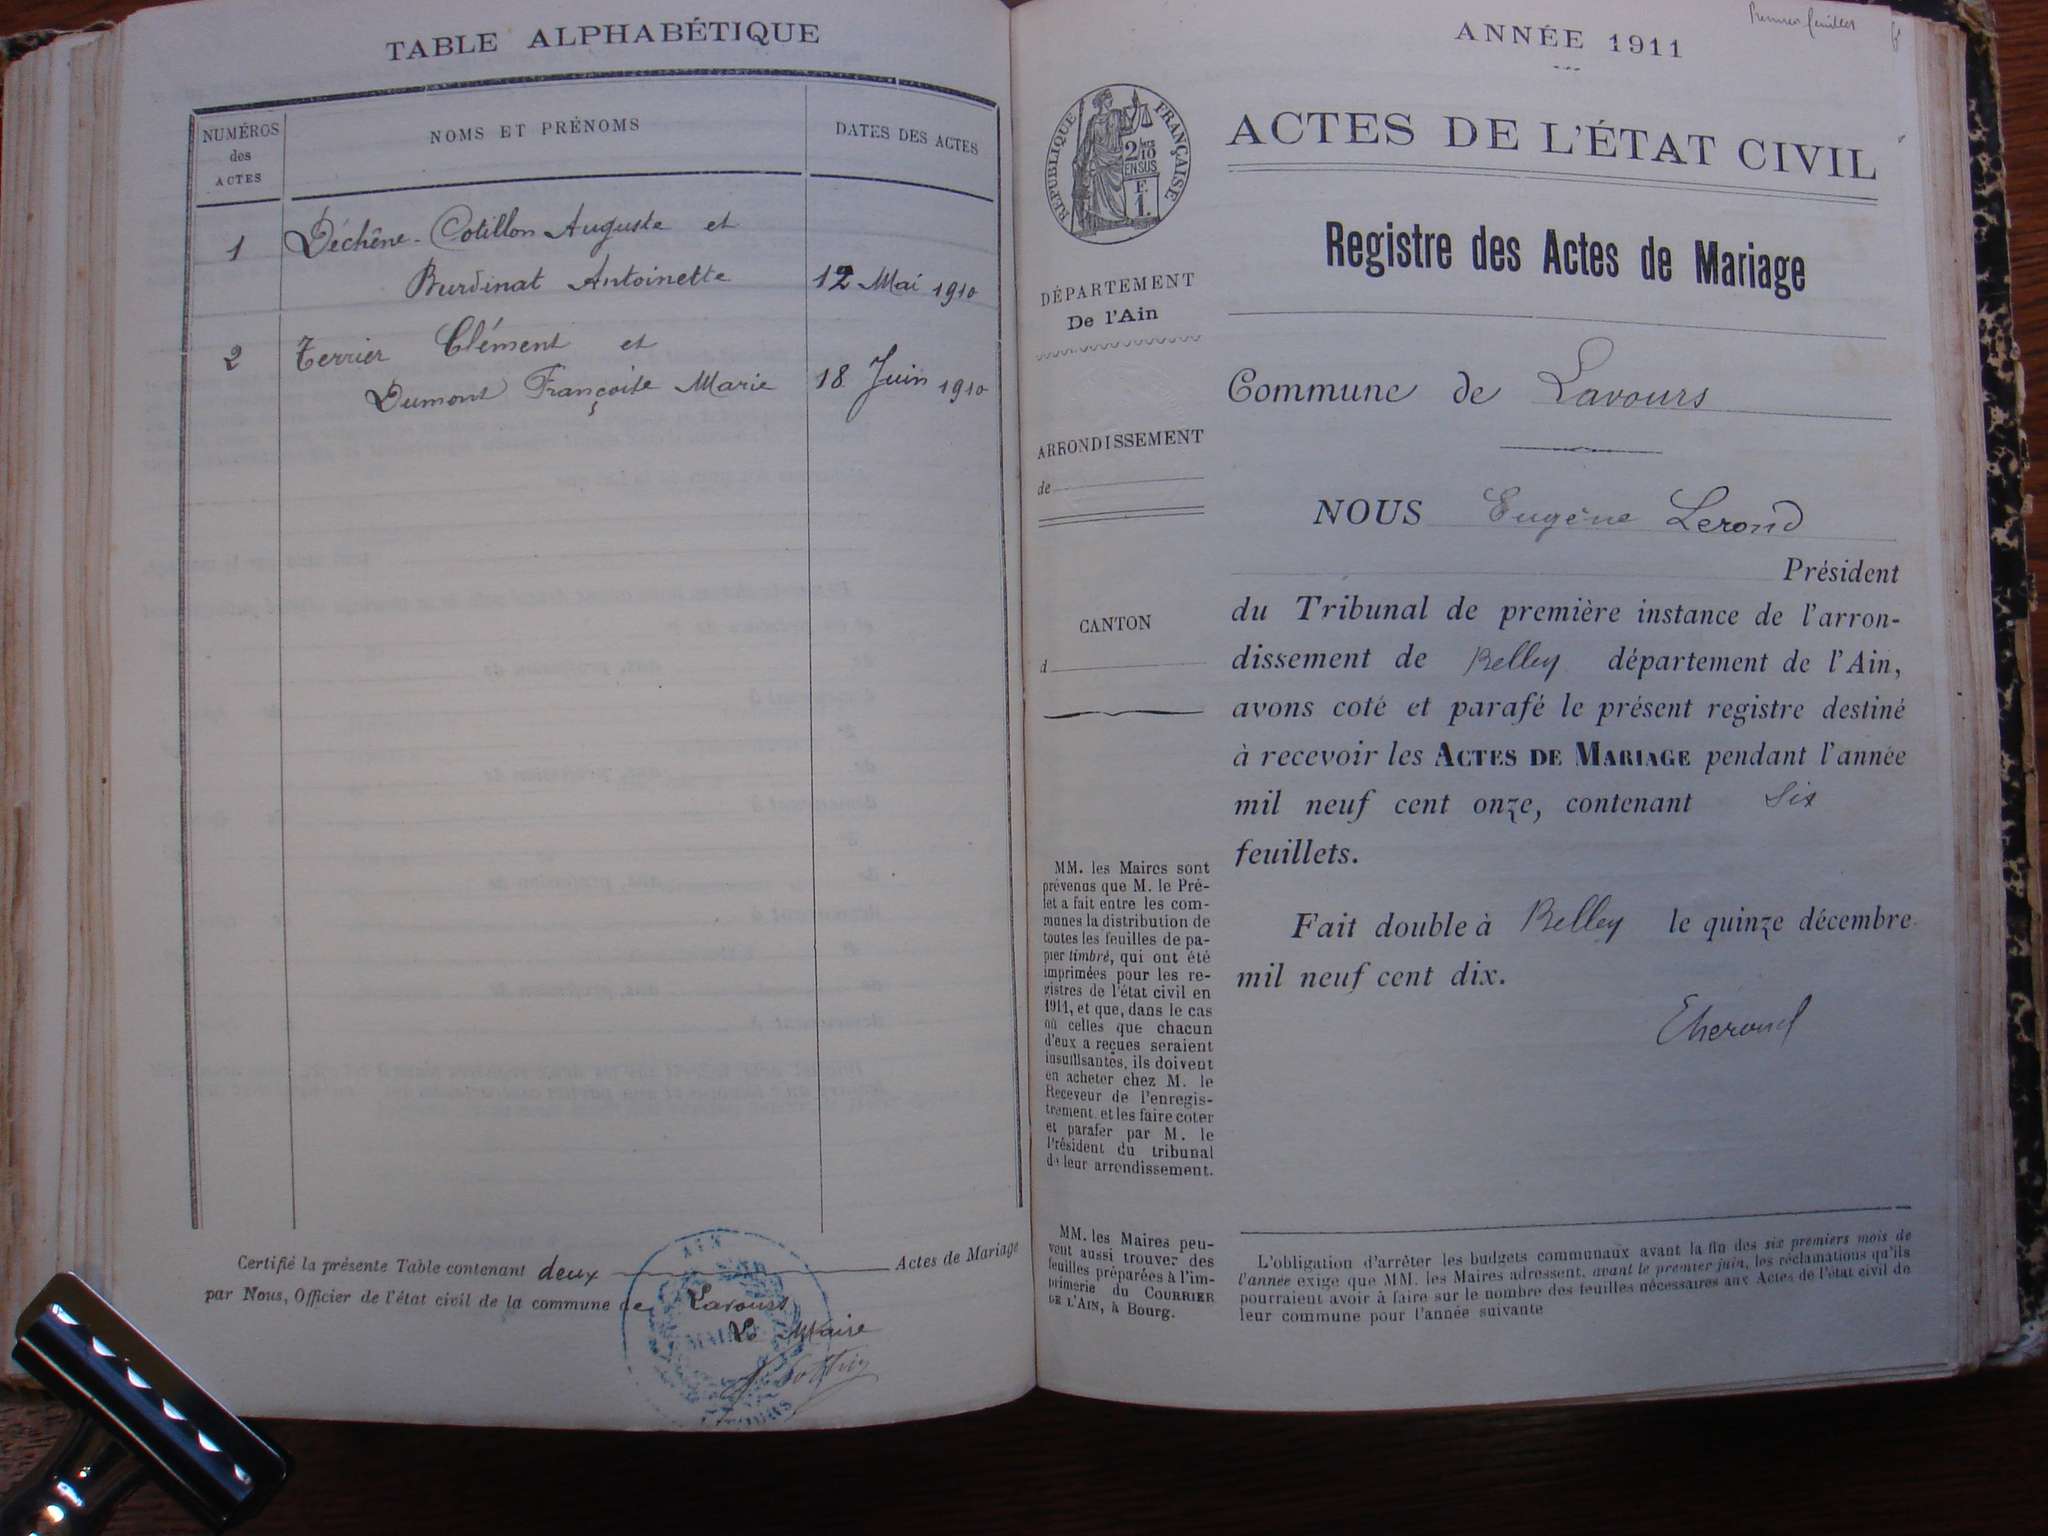 TABLE ALPHABÉTIQUE
NUMÉROS
des
ACTES
NOMS ET PRÉNOMS
DATES DES ACTES
1
Déchêne-Cotillon Auguste et
Burdinat Antoinette
12 Mai 1910
2
Terrier Clément et
Dumont Françoise Marie
18 Juin 1910
Certifié la présente Table contenant deux Actes de Mariage
par Nous, Officier de l'état civil de la commune de Lavours
Le Maire
AIN
MAIRIE
Premier feuillet
ANNÉE 1911
RÉPUBLIQUE FRANÇAISE
2/10
EN SUS
F.
1.
ACTES DE L'ÉTAT CIVIL
Registre des Actes de Mariage
DÉPARTEMENT
De l'Ain
ARRONDISSEMENT
de
CANTON
d
Commune de Lavours
NOUS Eugène Lerond
Président
du Tribunal de première instance de l'arron-
dissement de Belley département de l'Ain,
avons coté et parafé le présent registre destiné
à recevoir les ACTES DE MARIAGE pendant l'année
mil neuf cent onze, contenant six
feuillets.
Fait double à Belley le quinze décembre
mil neuf cent dix.
MM. les Maires sont
prévenus que M. le Pré-
fet a fait entre les com-
munes la distribution de
toutes les feuilles de pa-
pier timbré, qui ont été
imprimées pour les re-
gistres de l'état civil en
1911, et que, dans le cas
où celles que chacun
d'eux a reçues seraient
insuffisantes, ils doivent
en acheter chez M. le
Receveur de l'enregis-
trement et les faire coter
et parafer par M. le
Président du tribunal
de leur arrondissement.
MM. les Maires peu-
vent aussi trouver des
feuilles préparées à l'im-
primerie du COURRIER
DE L'AIN, à Bourg.
L'obligation d'arrêter les budgets communaux avant la fin des six premiers mois de
l'année exige que MM. les Maires adressent, avant le premier juin, les réclamations qu'ils
pourraient avoir à faire sur le nombre des feuilles nécessaires aux Actes de l'état civil de
leur commune pour l'année suivante